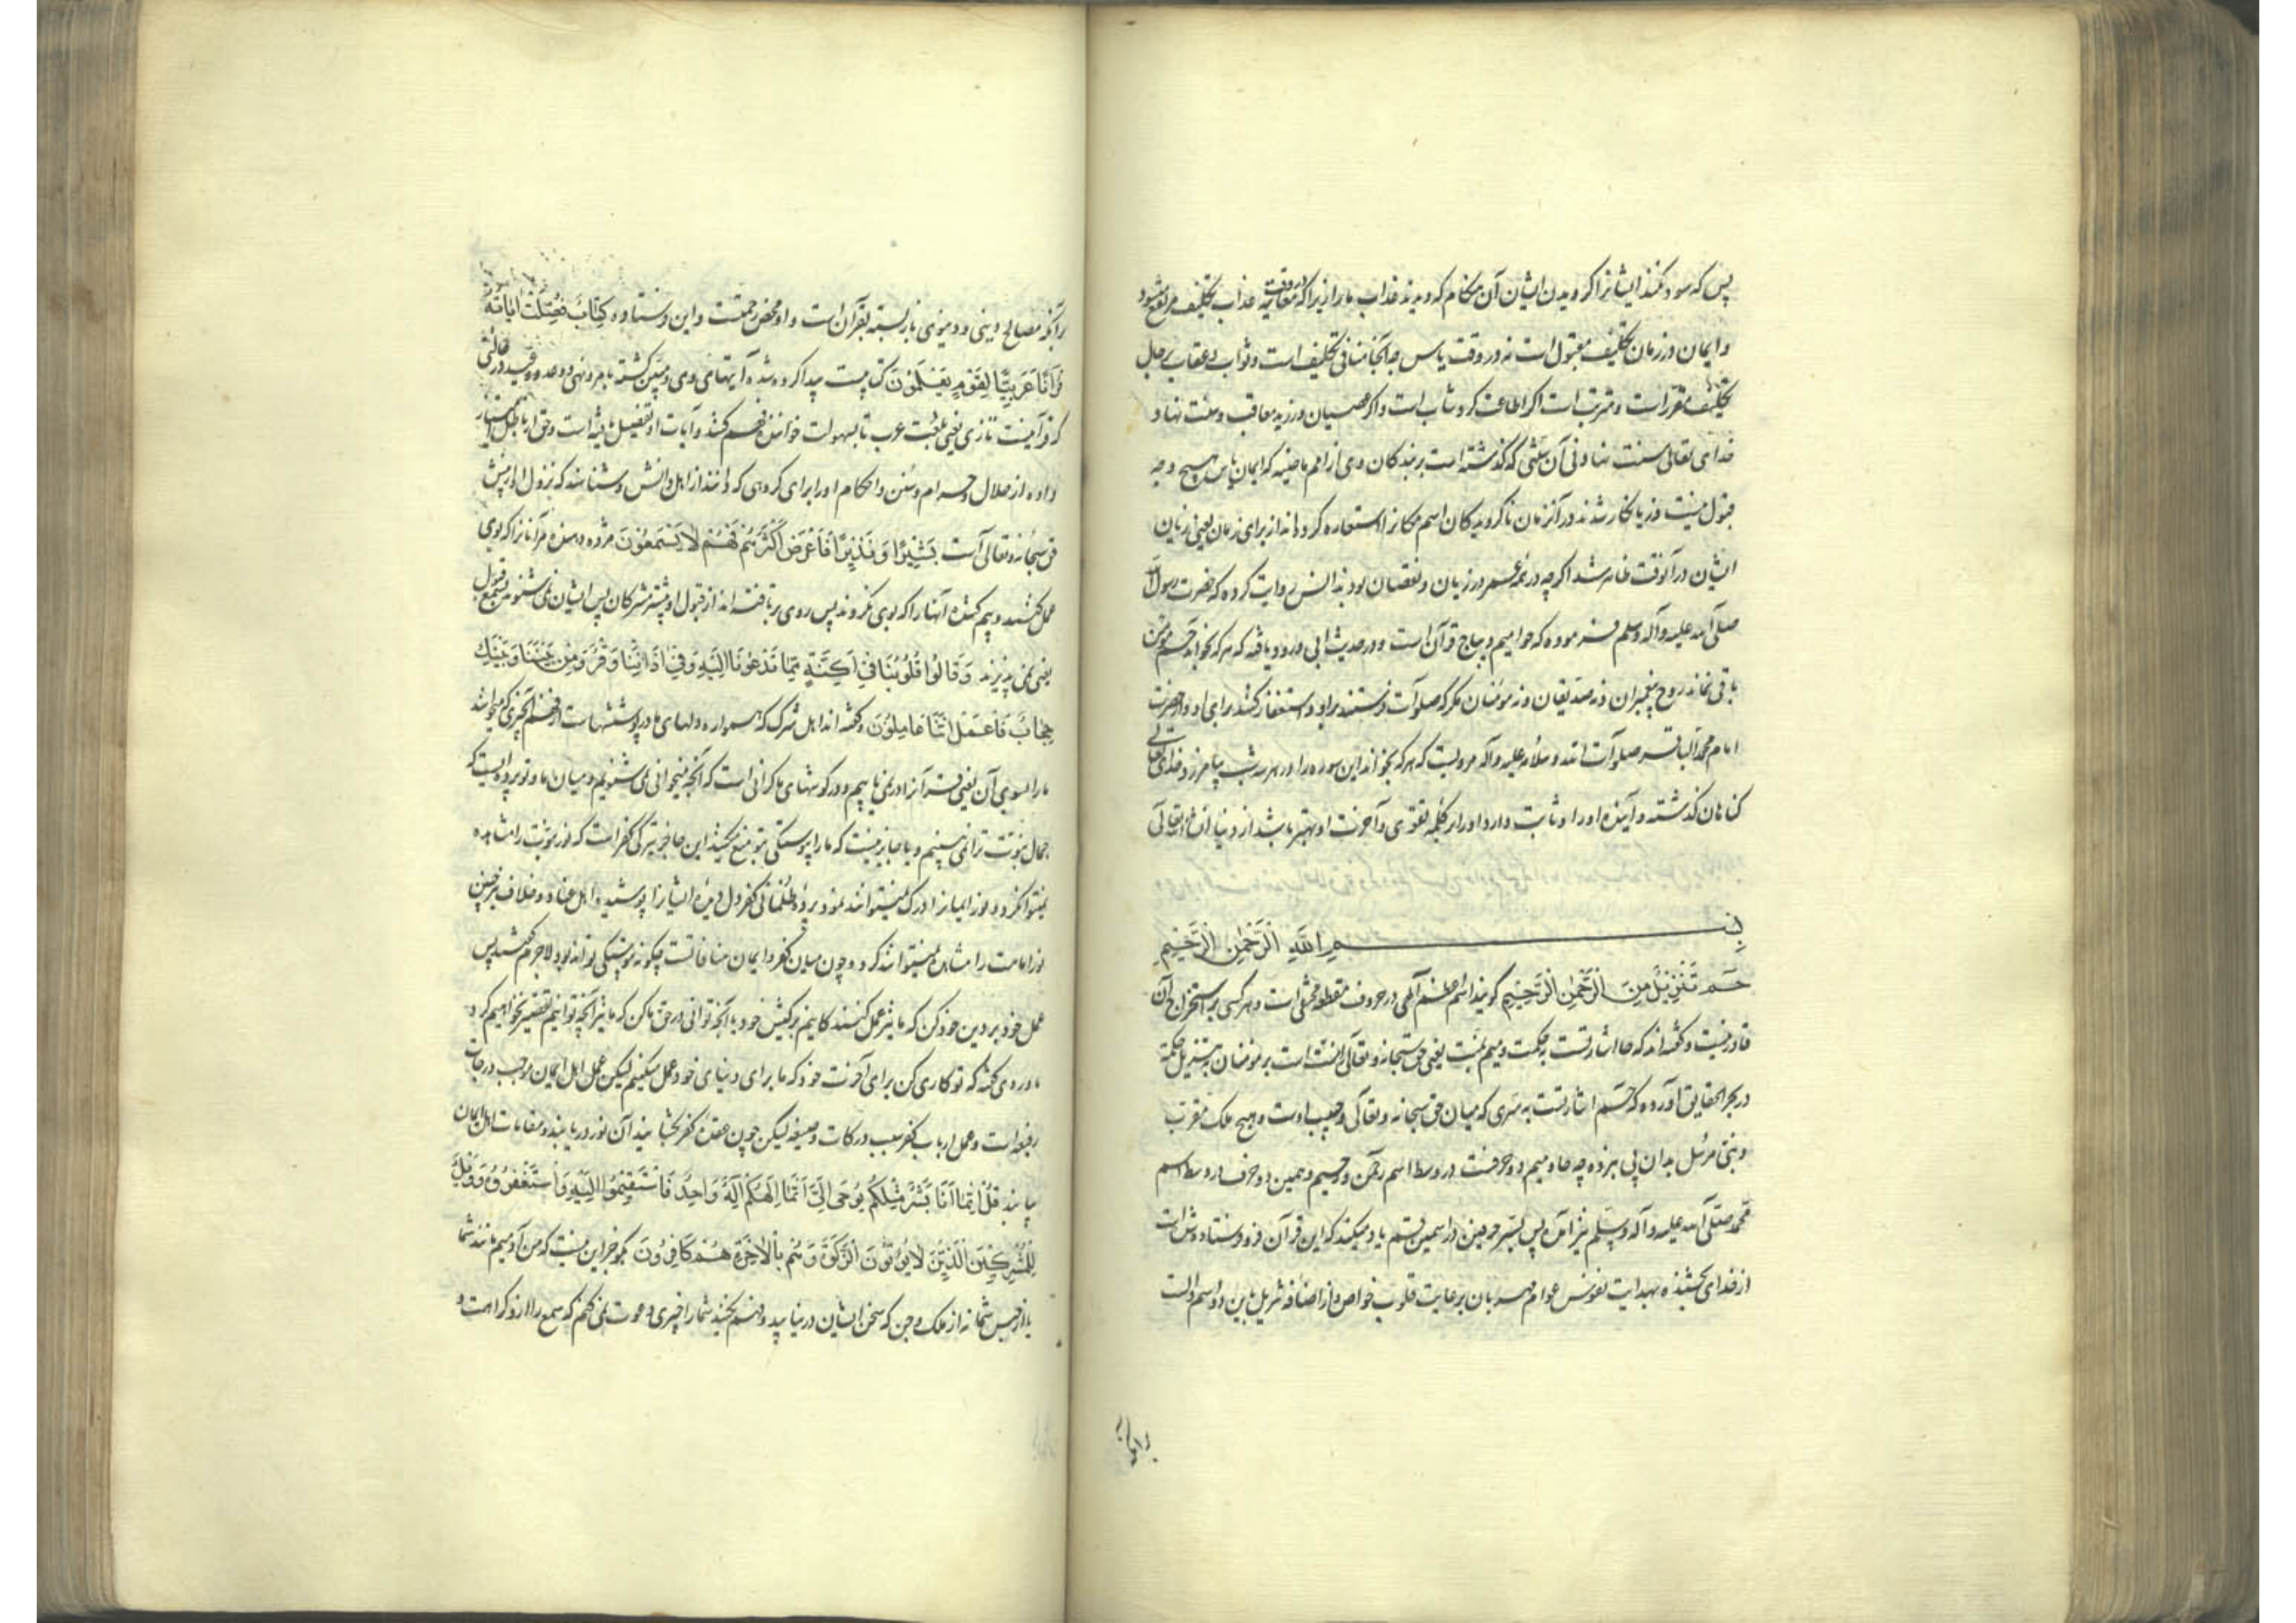 پس که سود نکند ایشانرا کرویدن ایشان آن هنکام که دیدند عذاب ما را زیرا که در وقت معاینه عذاب تکلیف مرتفع میشود
و ایمان در زمان تکلیف مقبول است نه در وقت یاس چه الجا منافی تکلیف است و ثواب و عقاب بر حال
تکلیف مقرر است و مترتب است اکر اطاعت کرد مثاب است و اکر عصیان ورزید معاقب و سنت نهاد
خدای تعالی سنت نهادنی آن سنتی که کذشته است بر بندکان وی از امم ماضیه که ایمان یاس بهیچ وجه
قبول نیست و زیانکار شدند در آنزمان ناکرویدکان اسم مکانرا استعاره کرده‌اند از برای زمان یعنی زیان
ایشان در آنوقت ظاهر شد اکرچه در همه عمر در زیان و نقصان بودند انس روایت کرده که حضرت رسول الله
صلی الله علیه و آله وسلم فرموده که حوامیم دیباج قرآن است و در حدیث ابی درود یافته که هر که بخواند حم مومن
باقی نماند روح پیغمبران و نه صدیقان و نه مومنان مکر که صلوات فرستند برای او و استغفار کنند برای او و از حضرت
امام محمد الباقر صلوات الله و سلامه علیه و آله مرویست که هر که بخواند این سوره را در هر سه شب بیامرزد خدای تعالی
کناهان کذشته و آینده او را و ثابت دارد او را بر کلمه تقوی و آخرت او بهتر باشد از دنیا ان شاء الله تعالی
بسم الله الرحمن الرحیم
حم تنزیل من الرحمن الرحیم کویند اسم اعظم الهی در حروف مقطعه مخفی است و هر کسی بر استخراج آن
قادر نیست و کفته‌اند که حا اشارتست به حکمت و میم بمنت یعنی حق سبحانه و تعالی را منت است بر مومنان به تنزیل حکمت
در بحر الحقایق آورده که حم اشارتست به سری که میان حق سبحانه و تعالی و حبیب اوست و هیچ ملک مقرب
و نبی مرسل بدان پی نبرده چه حا و میم دو حرفست در وسط اسم رحمن و رحیم و همین دو حرف در وسط اسم
محمد صلی الله علیه و آله وسلم نیز آمده پس بسر حرفین در اسمین قسم یاد میکند که این قرآن فرو فرستاده شده است
از خدای بخشنده بهدایت نفوس عوام مهربان برعایت قلوب خواص و از اضافه تنزیل باین دو اسم دالست
را آنکه مصالح دینی و دنیوی باز بسته بقرآن است و او محض رحمتست و این فرستاده کتاب فصلت ایاته
قرآنا عربیا لقوم یعلمون کتابیست پیدا کرده شده آیتهای وی و مبین کشته بامر و نهی و وعده و وعید در حالتی
که قرآنیست تازی یعنی بلغت عرب تا بسهولت خوانند و فهم کنند و آیات او تفصیل یافته است و حق او باطل امتیاز
داده از حلال و حرام و سنن و احکام او را برای کروهی که دانند از اهل دانش و شناسند که نزول او از پیش
حق سبحانه و تعالی است بشیرا و نذیرا فاعرض اکثرهم فهم لا یسمعون مژده دهنده مر آنانرا که بوی
عمل کنند و بیم کننده آنها را که بوی نکروند پس روی برتافته‌اند از قبول او بیشتر مشرکان پس ایشان نمی‌شنوند بسمع قبول
یعنی نمی پذیرند و قالوا قلوبنا فی اکنة مما تدعونا الیه و فی اذاننا وقر و من بیننا و بینک
حجاب فاعمل اننا عاملون و کفته‌اند اهل شرک که همواره دلهای ما در پوششهاست از فهم آنچیزی که میخوانید
ما را بسوی آن یعنی قرآنرا در نمی‌یابیم و در کوشهای ما کرانی است که آنچه میخوانی نمی شنویم و میان ما و تو پرده‌ایست که
جمال نبوت ترا نمی بینیم و یا حاجزیست که ما را از پیوستکی بتو منع میکند این حاجز تیرکی کفر است که نور نبوت را مشاهده
نمیتوانکرد و نور ایمانرا ادراک نمیتواند نمود پرده ظلمانی کفر دل و دیده ایشانرا پوشیده اهل عناد و خلاف نیز همچنین
نور امامت را مشاهده نمیتوانند کرد و چون میان کفر و ایمان منافاتست چکونه پیوستکی تواند بود لاجرم کفتند پس
عمل خود بر دین خود کن که ما نیز عمل کنندکانیم بر کیش خود یا آنچه توانی در حق ما کن که ما نیز آنچه توانیم تقصیر نخواهیم کرد
ماوردی کفته که تو کاری کن برای آخرت خود که ما برای دنیای خود عمل میکنیم لیکن عمل اهل ایمان موجب درجات
رفیعه است و عمل ارباب کفر سبب درکات وضیعه لیکن چون عقده کفر بکشایند آن نور دریابند و مقامات اهل ایمان
بیابند قل انما انا بشر مثلکم یوحی الی انما الهکم اله واحد فاستقیموا الیه و استغفروه و ویل
للمشرکین الذین لا یؤتون الزکوة و هم بالاخرة هم کافرون بکو جز این نیست که من آدمیم مانند شما
یا از جنس شما نه از ملک و جن که سخن ایشان در نیابید و فهم نکنید شما را چیزی دعوت نمی کنم که سمع را از او کراهت